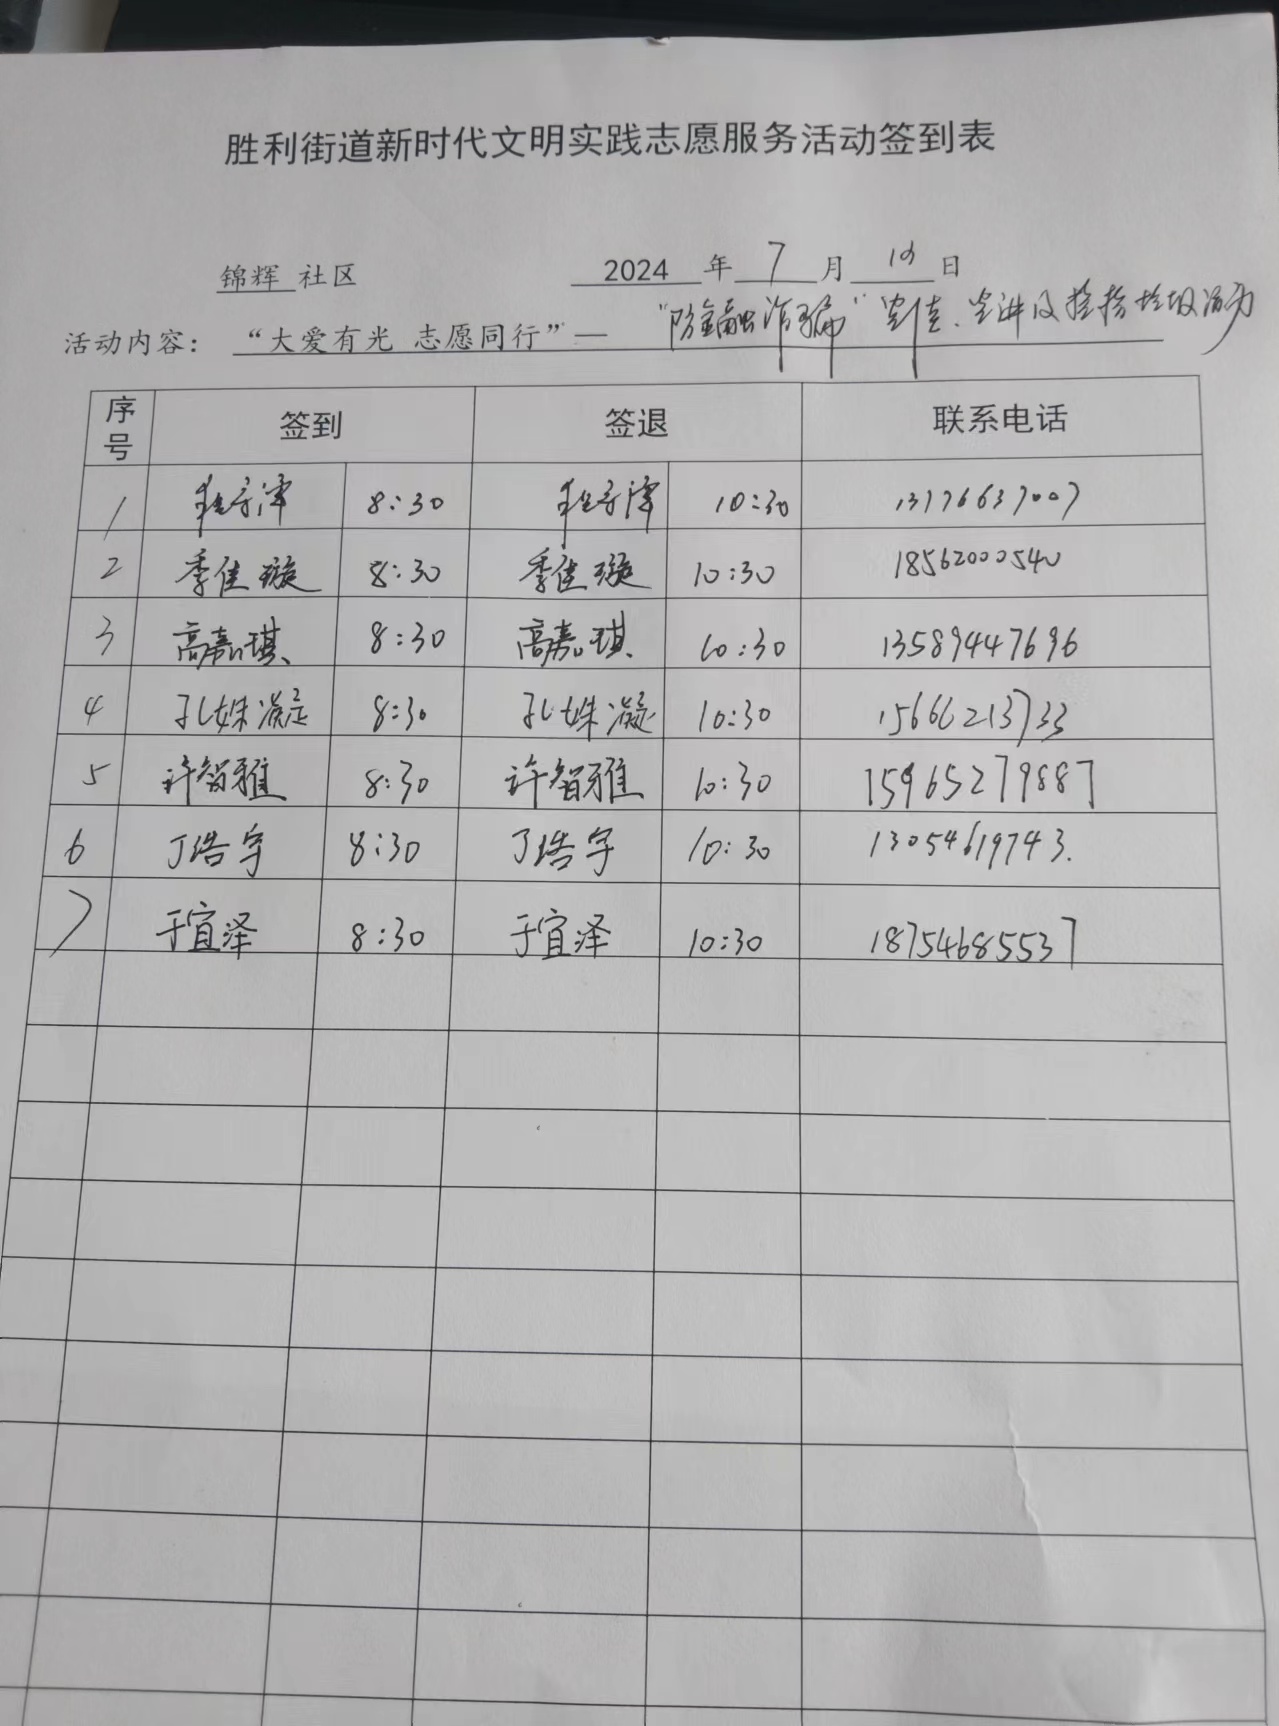 胜利街道新时代文明实践志愿服务活动签到表
锦辉 社区 2024 年 7 月 19 日
活动内容： “大爱有光 志愿同行”— “防金融诈骗” 宣传、宣讲及捡拾垃圾活动
序号 签到 签退 联系电话
1 8:30 10:30 13176637007
2 季佳璇 8:30 季佳璇 10:30 18562000540
3 高嘉琪 8:30 高嘉琪 10:30 13589447696
4 孔姝凝 8:30 孔姝凝 10:30 15666213733
5 许智雅 8:30 许智雅 10:30 15965279887
6 丁浩宇 8:30 丁浩宇 10:30 13054619743.
7 于宜泽 8:30 于宜泽 10:30 18754685537